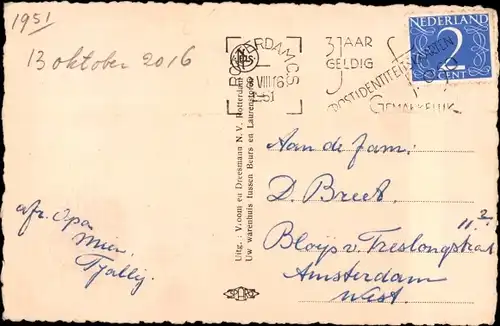 1951
13 oktober 2016
ROTTERDAM C.S.
VIII 16
1951
3 JAAR
GELDIG
POSTIDENTITEITSKAARTEN
GEMAKKELIJK
NEDERLAND
2
CENT
Uitg.: Vroom en Dreesmann N.V. Rotterdam
Uw warenhuis tussen Beurs en Laurenstoren
Aan de fam:
D. Breet.
11 2
Bloijs v. Treslongstraat
Amsterdam
West.
afz. Opa
Mien
Tjallij.